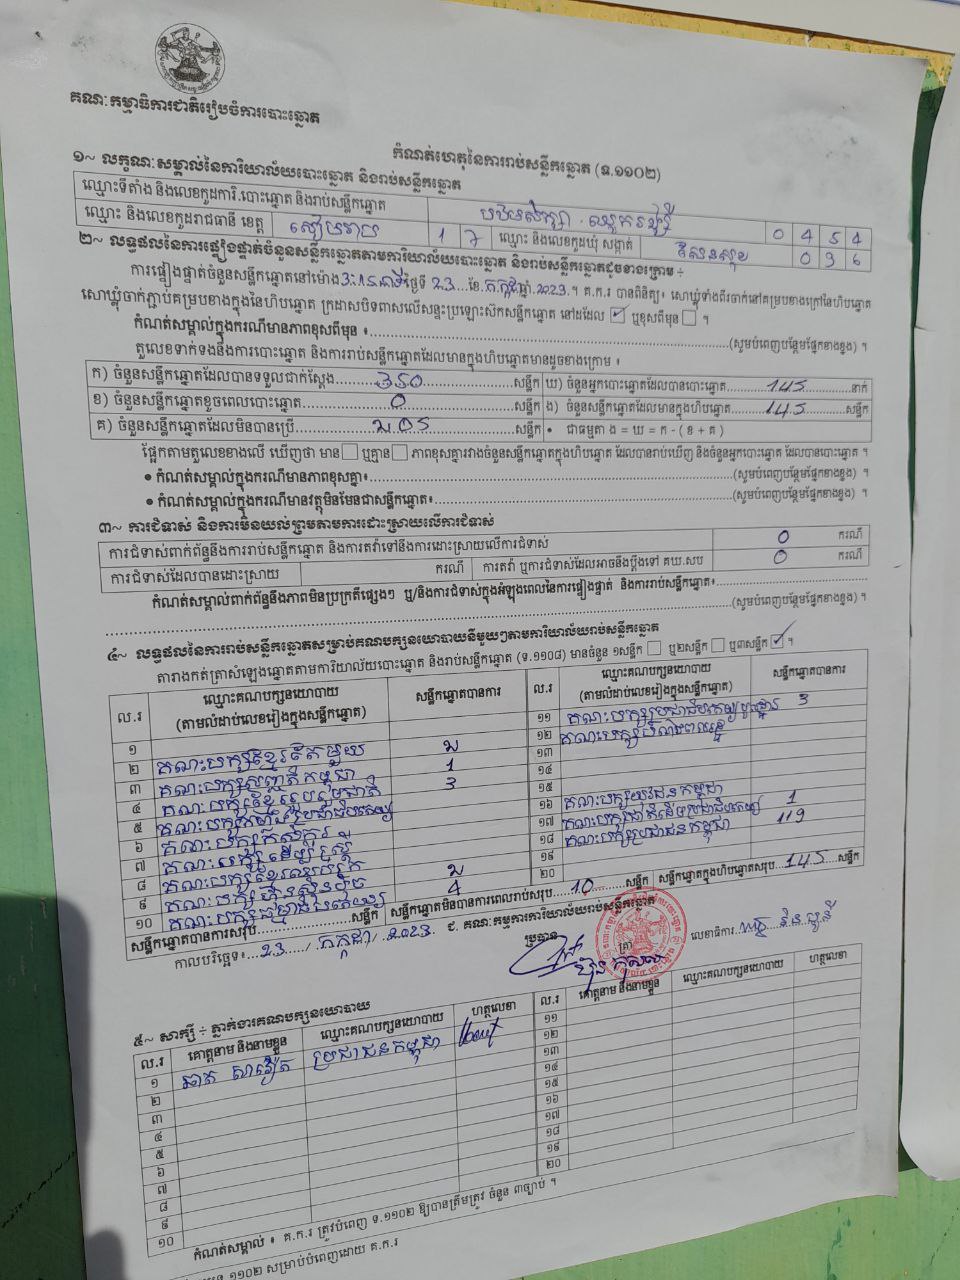 គណៈកម្មាធិការជាតិរៀបចំការបោះឆ្នោត
កំណត់ហេតុនៃការរាប់សន្លឹកឆ្នោត (ទ.១១០២)
១~ លក្ខណៈសម្គាល់នៃការិយាល័យបោះឆ្នោត និងរាប់សន្លឹកឆ្នោត
ឈ្មោះទីតាំង និងលេខកូដការិ.បោះឆ្នោត និងរាប់សន្លឹកឆ្នោត 0 4 5 4
ឈ្មោះ និងលេខកូដរាជធានី ខេត្ត សៀមរាប 1 7 ឈ្មោះ និងលេខកូដឃុំ សង្កាត់ សែនសុខ 0 9 6
២~ លទ្ធផលនៃការផ្ទៀងផ្ទាត់ចំនួនសន្លឹកឆ្នោតតាមការិយាល័យបោះឆ្នោត និងរាប់សន្លឹកឆ្នោតដូចខាងក្រោម ÷
ការផ្ទៀងផ្ទាត់ចំនួនសន្លឹកឆ្នោតនៅម៉ោង 3:15 នាទី ថ្ងៃទី 23 ខែ កក្កដា ឆ្នាំ 2023 ។ គ.ក.រ បានពិនិត្យ៖ សោឃ្លុំទាំងពីរចាក់នៅគម្របខាងក្រៅនៃហិបឆ្នោត
សោឃ្លុំចាក់ភ្ជាប់គម្របខាងក្នុងនៃហិបឆ្នោត ក្រដាសបិទពាសលើសន្ទះប្រឡោះស៊កសន្លឹកឆ្នោត នៅដដែល ☑ ឬខុសពីមុន ☐ ។
កំណត់សម្គាល់ក្នុងករណីមានភាពខុសពីមុន ៖ (សូមបំពេញបន្ថែមផ្នែកខាងខ្នង) ។
តួលេខទាក់ទងនឹងការបោះឆ្នោត និងការរាប់សន្លឹកឆ្នោតដែលមានក្នុងហិបឆ្នោតមានដូចខាងក្រោម ៖
ក) ចំនួនសន្លឹកឆ្នោតដែលបានទទួលជាក់ស្តែង 350 សន្លឹក ឃ) ចំនួនអ្នកបោះឆ្នោតដែលបានបោះឆ្នោត 145 នាក់
ខ) ចំនួនសន្លឹកឆ្នោតខូចពេលបោះឆ្នោត 0 សន្លឹក ង) ចំនួនសន្លឹកឆ្នោតដែលមានក្នុងហិបឆ្នោត 145 សន្លឹក
គ) ចំនួនសន្លឹកឆ្នោតដែលមិនបានប្រើ 205 សន្លឹក • ជាធម្មតា ង = ឃ = ក - ( ខ + គ )
ផ្អែកតាមតួលេខខាងលើ ឃើញថា មាន ☐ ឬគ្មាន ☐ ភាពខុសគ្នារវាងចំនួនសន្លឹកឆ្នោតក្នុងហិបឆ្នោត ដែលបានរាប់ឃើញ និងចំនួនអ្នកបោះឆ្នោត ដែលបានបោះឆ្នោត ។
• កំណត់សម្គាល់ក្នុងករណីមានភាពខុសគ្នា៖ (សូមបំពេញបន្ថែមផ្នែកខាងខ្នង) ។
• កំណត់សម្គាល់ក្នុងករណីមានវត្ថុមិនមែនជាសន្លឹកឆ្នោត៖ (សូមបំពេញបន្ថែមផ្នែកខាងខ្នង) ។
៣~ ការជំទាស់ និងការមិនយល់ព្រមតាមការដោះស្រាយលើការជំទាស់
ការជំទាស់ពាក់ព័ន្ធនឹងការរាប់សន្លឹកឆ្នោត និងការតវ៉ាទៅនឹងការដោះស្រាយលើការជំទាស់ 0 ករណី
ការជំទាស់ដែលបានដោះស្រាយ ករណី ការតវ៉ា ឬការជំទាស់ដែលអាចនឹងប្តឹងទៅ គឃ.សប 0 ករណី
កំណត់សម្គាល់ពាក់ព័ន្ធនឹងភាពមិនប្រក្រតីផ្សេងៗ ឬ/និងការជំទាស់ក្នុងអំឡុងពេលនៃការផ្ទៀងផ្ទាត់ និងការរាប់សន្លឹកឆ្នោត៖
(សូមបំពេញបន្ថែមផ្នែកខាងខ្នង) ។
៤~ លទ្ធផលនៃការរាប់សន្លឹកឆ្នោតសម្រាប់គណបក្សនយោបាយនីមួយៗតាមការិយាល័យរាប់សន្លឹកឆ្នោត
តារាងកត់ត្រាសំឡេងឆ្នោតតាមការិយាល័យបោះឆ្នោត និងរាប់សន្លឹកឆ្នោត (ទ.១១០៨) មានចំនួន ១សន្លឹក ☐ ឬ២សន្លឹក ☐ ឬ៣សន្លឹក ☑ ។
ល.រ ឈ្មោះគណបក្សនយោបាយ (តាមលំដាប់លេខរៀងក្នុងសន្លឹកឆ្នោត) សន្លឹកឆ្នោតបានការ
១ គណបក្សខ្មែរតែមួយ 2
២ គណបក្សសញ្ជាតិកម្ពុជា 1
៣ គណបក្សខ្មែររួបរួមជាតិ 3
៤
៥
៦
៧
៨ 2
៩ 4
១០
ល.រ ឈ្មោះគណបក្សនយោបាយ (តាមលំដាប់លេខរៀងក្នុងសន្លឹកឆ្នោត) សន្លឹកឆ្នោតបានការ
១១ 3
១២
១៣
១៤
១៥
១៦ គណបក្សយុវជនកម្ពុជា
១៧ 1
១៨ គណបក្សប្រជាជនកម្ពុជា 119
១៩
២០
សន្លឹកឆ្នោតបានការសរុប សន្លឹក សន្លឹកឆ្នោតមិនបានការពេលរាប់សរុប 10 សន្លឹក សន្លឹកឆ្នោតក្នុងហិបឆ្នោតសរុប 145 សន្លឹក
កាលបរិច្ឆេទ៖ 23 / កក្កដា / 2023 ជ. គណៈកម្មការការិយាល័យរាប់សន្លឹកឆ្នោត
ប្រធាន ត្រា លេខាធិការ
៥~ សាក្សី ÷ ភ្នាក់ងារគណបក្សនយោបាយ
ល.រ គោត្តនាម និងនាមខ្លួន ឈ្មោះគណបក្សនយោបាយ ហត្ថលេខា
១ ប្រជាជនកម្ពុជា
២
៣
៤
៥
៦
៧
៨
៩
១០
ល.រ គោត្តនាម និងនាមខ្លួន ឈ្មោះគណបក្សនយោបាយ ហត្ថលេខា
១១
១២
១៣
១៤
១៥
១៦
១៧
១៨
១៩
២០
កំណត់សម្គាល់ ៖ គ.ក.រ ត្រូវបំពេញ ទ.១១០២ ឱ្យបានត្រឹមត្រូវ ចំនួន ៣ច្បាប់ ។
១១០២ សម្រាប់បំពេញដោយ គ.ក.រ